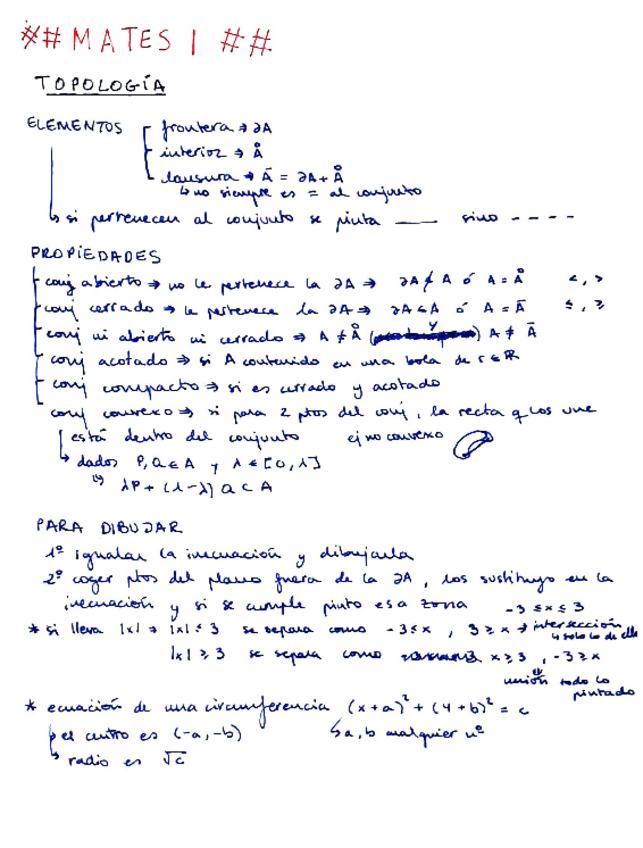 ## MATES I ##
TOPOLOGÍA
ELEMENTOS frontera → ∂A
interior → Å
clausura → Ā = ∂A + Å
↳ no siempre es = al conjunto
↳ si pertenecen al conjunto se pinta —— sino - - - -
PROPIEDADES
conj abierto → no le pertenece la ∂A → ∂A ⊄ A ó A = Å <, >
conj cerrado → le pertenece la ∂A → ∂A ⊂ A ó A = Ā ≤, ≥
conj ni abierto ni cerrado → A ≠ Å y A ≠ Ā
conj acotado → si A contenido en una bola de r ∈ ℝ
conj compacto → si es cerrado y acotado
conj convexo → si para 2 ptos del conj, la recta q los une
está dentro del conjunto ej no convexo
↳ dados P, Q ∈ A y λ ∈ [0,1]
↳ λP + (1-λ) Q ⊂ A
PARA DIBUJAR
1º igualar la inecuación y dibujarla
2º coger ptos del plano fuera de la ∂A, los sustituyo en la
inecuación y si se cumple pinto esa zona -3 ≤ x ≤ 3
* si lleva |x| → |x| ≤ 3 se separa como -3 ≤ x, 3 ≥ x → intersección
↳ solo lo de
|x| ≥ 3 se separa como x ≥ 3, -3 ≥ x
unión todo lo
pintado
* ecuación de una circunferencia (x+a)² + (y+b)² = c
el centro es (-a,-b) ↳ a, b cualquier nº
↳ radio es √c